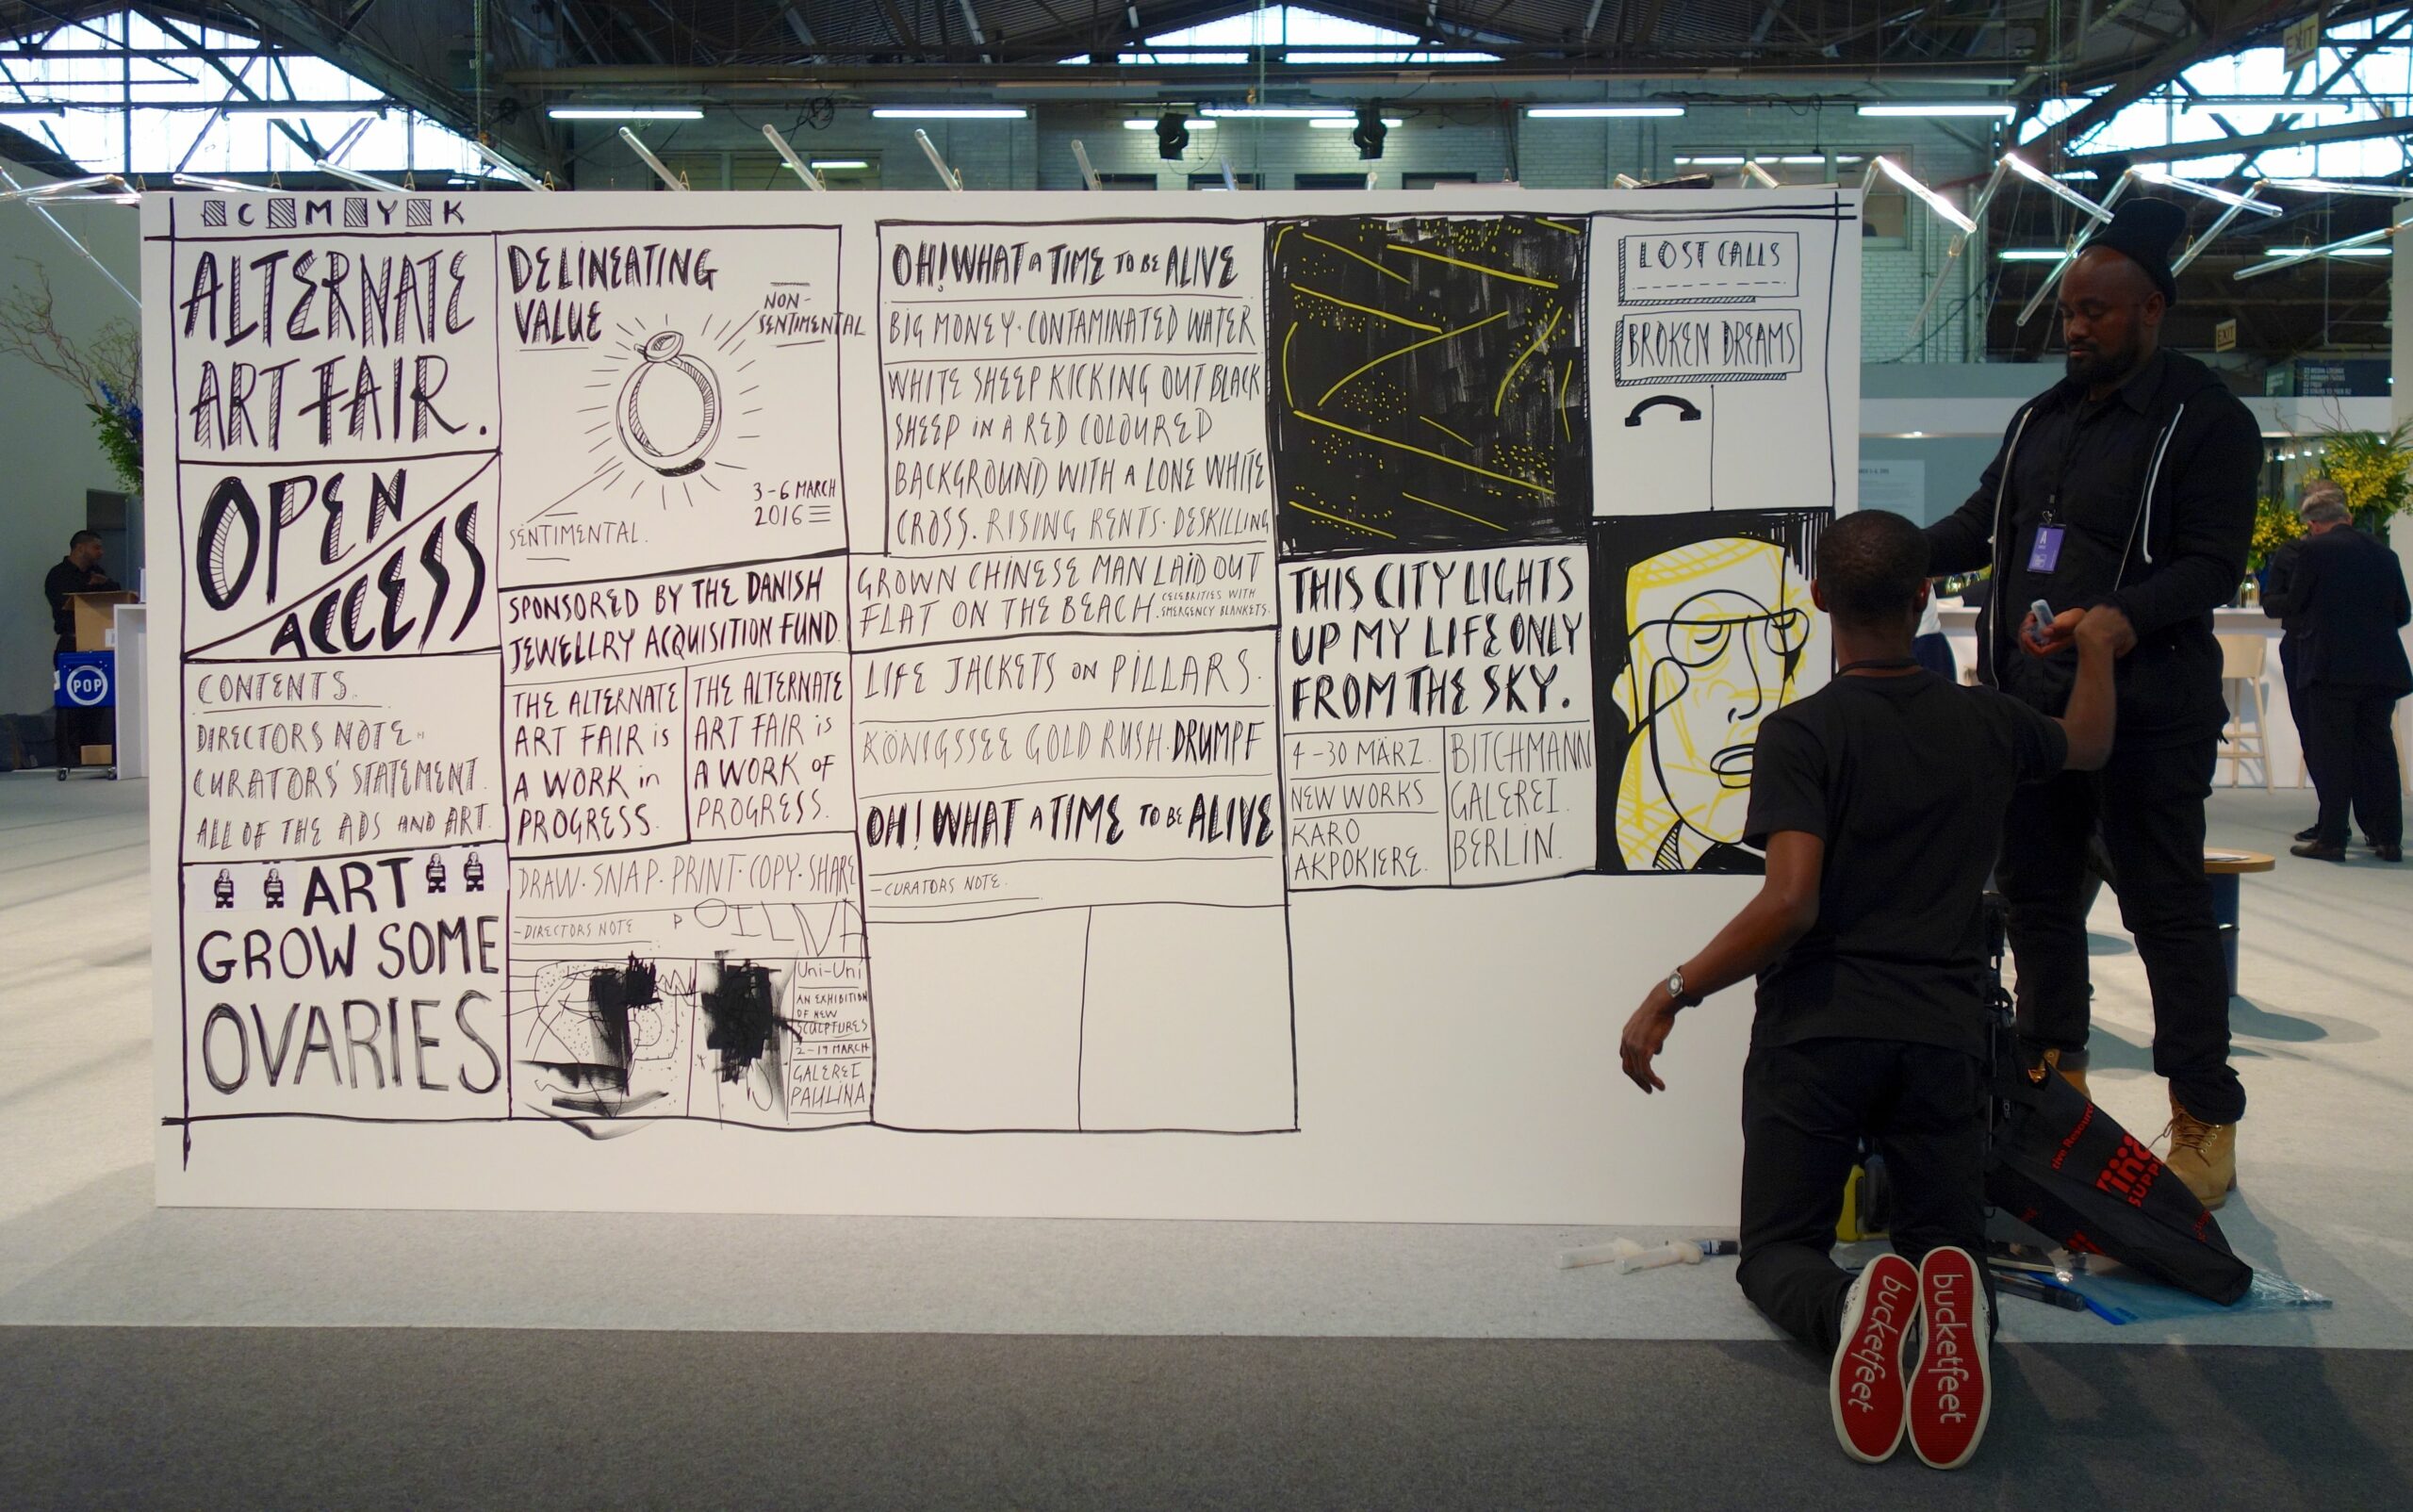 C M Y K
ALTERNATE
ART FAIR.
OPEN
ACCESS
CONTENTS
DIRECTORS NOTE
CURATORS' STATEMENT.
ALL OF THE ADS AND ART.
ART
GROW SOME
OVARIES
DELINEATING
VALUE
NON-
SENTIMENTAL
SENTIMENTAL.
3-6 MARCH
2016
SPONSORED BY THE DANISH
JEWELLRY ACQUISITION FUND
THE ALTERNATE
ART FAIR is
A WORK in
PROGRESS.
THE ALTERNATE
ART FAIR is
A WORK OF
PROGRESS.
DRAW·SNAP·PRINT·COPY·SHARE
-DIRECTORS NOTE
Uni-Uni
AN EXHIBITION
OF NEW
SCULPTURES
2-19 MARCH
GALEREI
PAULINA
OH! WHAT A TIME TO BE ALIVE
BIG MONEY·CONTAMINATED WATER
WHITE SHEEP KICKING OUT BLACK
SHEEP IN A RED COLOURED
BACKGROUND WITH A LONE WHITE
CROSS. RISING RENTS·DESKILLING
GROWN CHINESE MAN LAID OUT
FLAT ON THE BEACH.
CELEBRITIES WITH
EMERGENCY BLANKETS.
LIFE JACKETS ON PILLARS.
KÖNIGSSEE GOLD RUSH·DRUMPF
OH! WHAT A TIME TO BE ALIVE
-CURATORS NOTE.
THIS CITY LIGHTS
UP MY LIFE ONLY
FROM THE SKY.
4-30 MÄRZ.
NEW WORKS
KARO
AKPOKIERE.
BITCHMANN
GALEREI.
BERLIN.
LOST CALLS
BROKEN DREAMS
POP
EXIT
EXIT
bucketfeet
bucketfeet